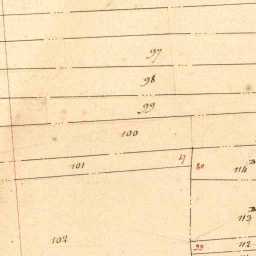 97
98
99
100
101
80
114
113
102
112